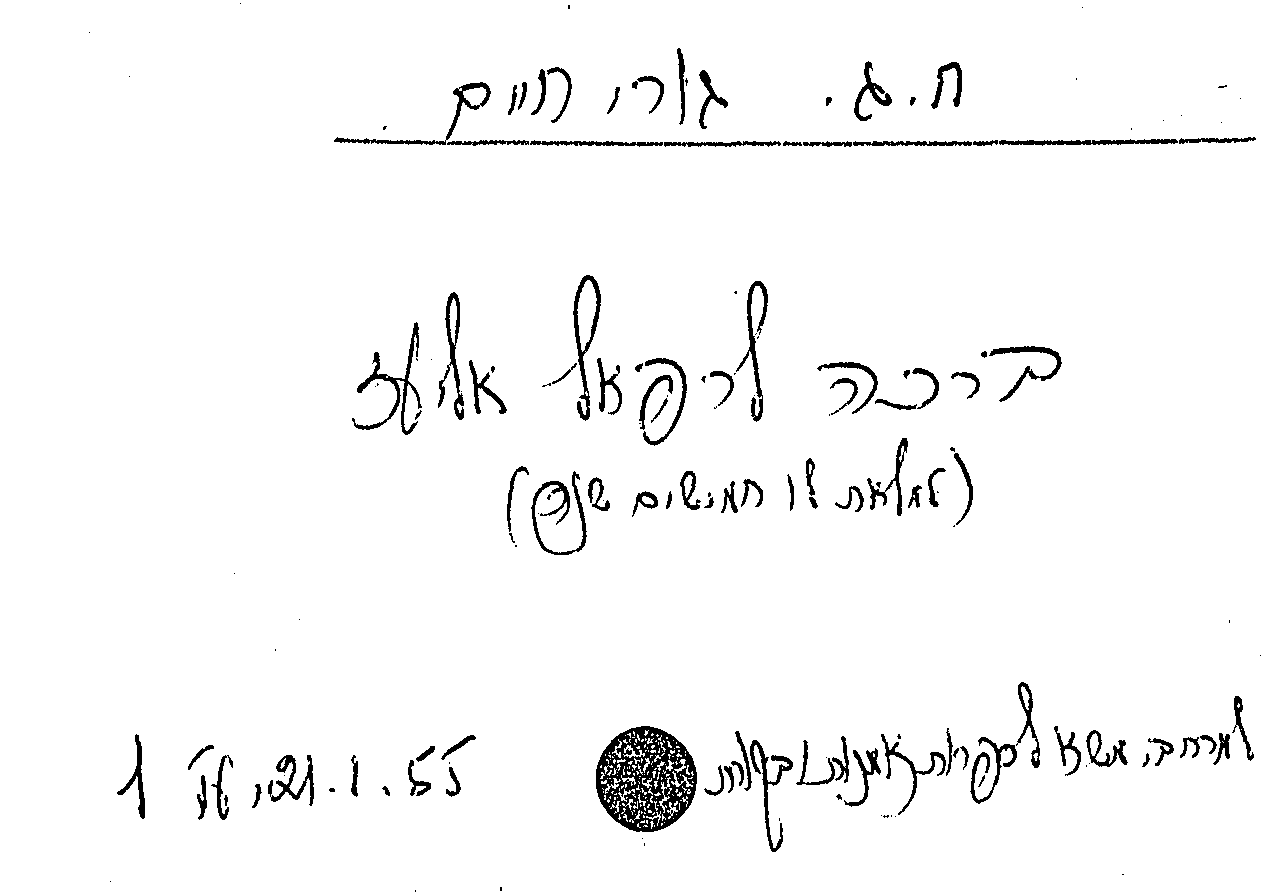 ח.ג. גורי, חיים
ברכה לרפאל אליעז
(למלאת לו חמישים שנה)
למרחב, משא לספרות אמנות ובקורת 21.1.55, עמ' 1